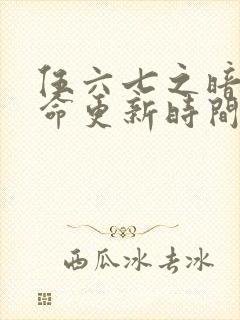 伍六七之暗
命更新時間
西瓜冰去冰